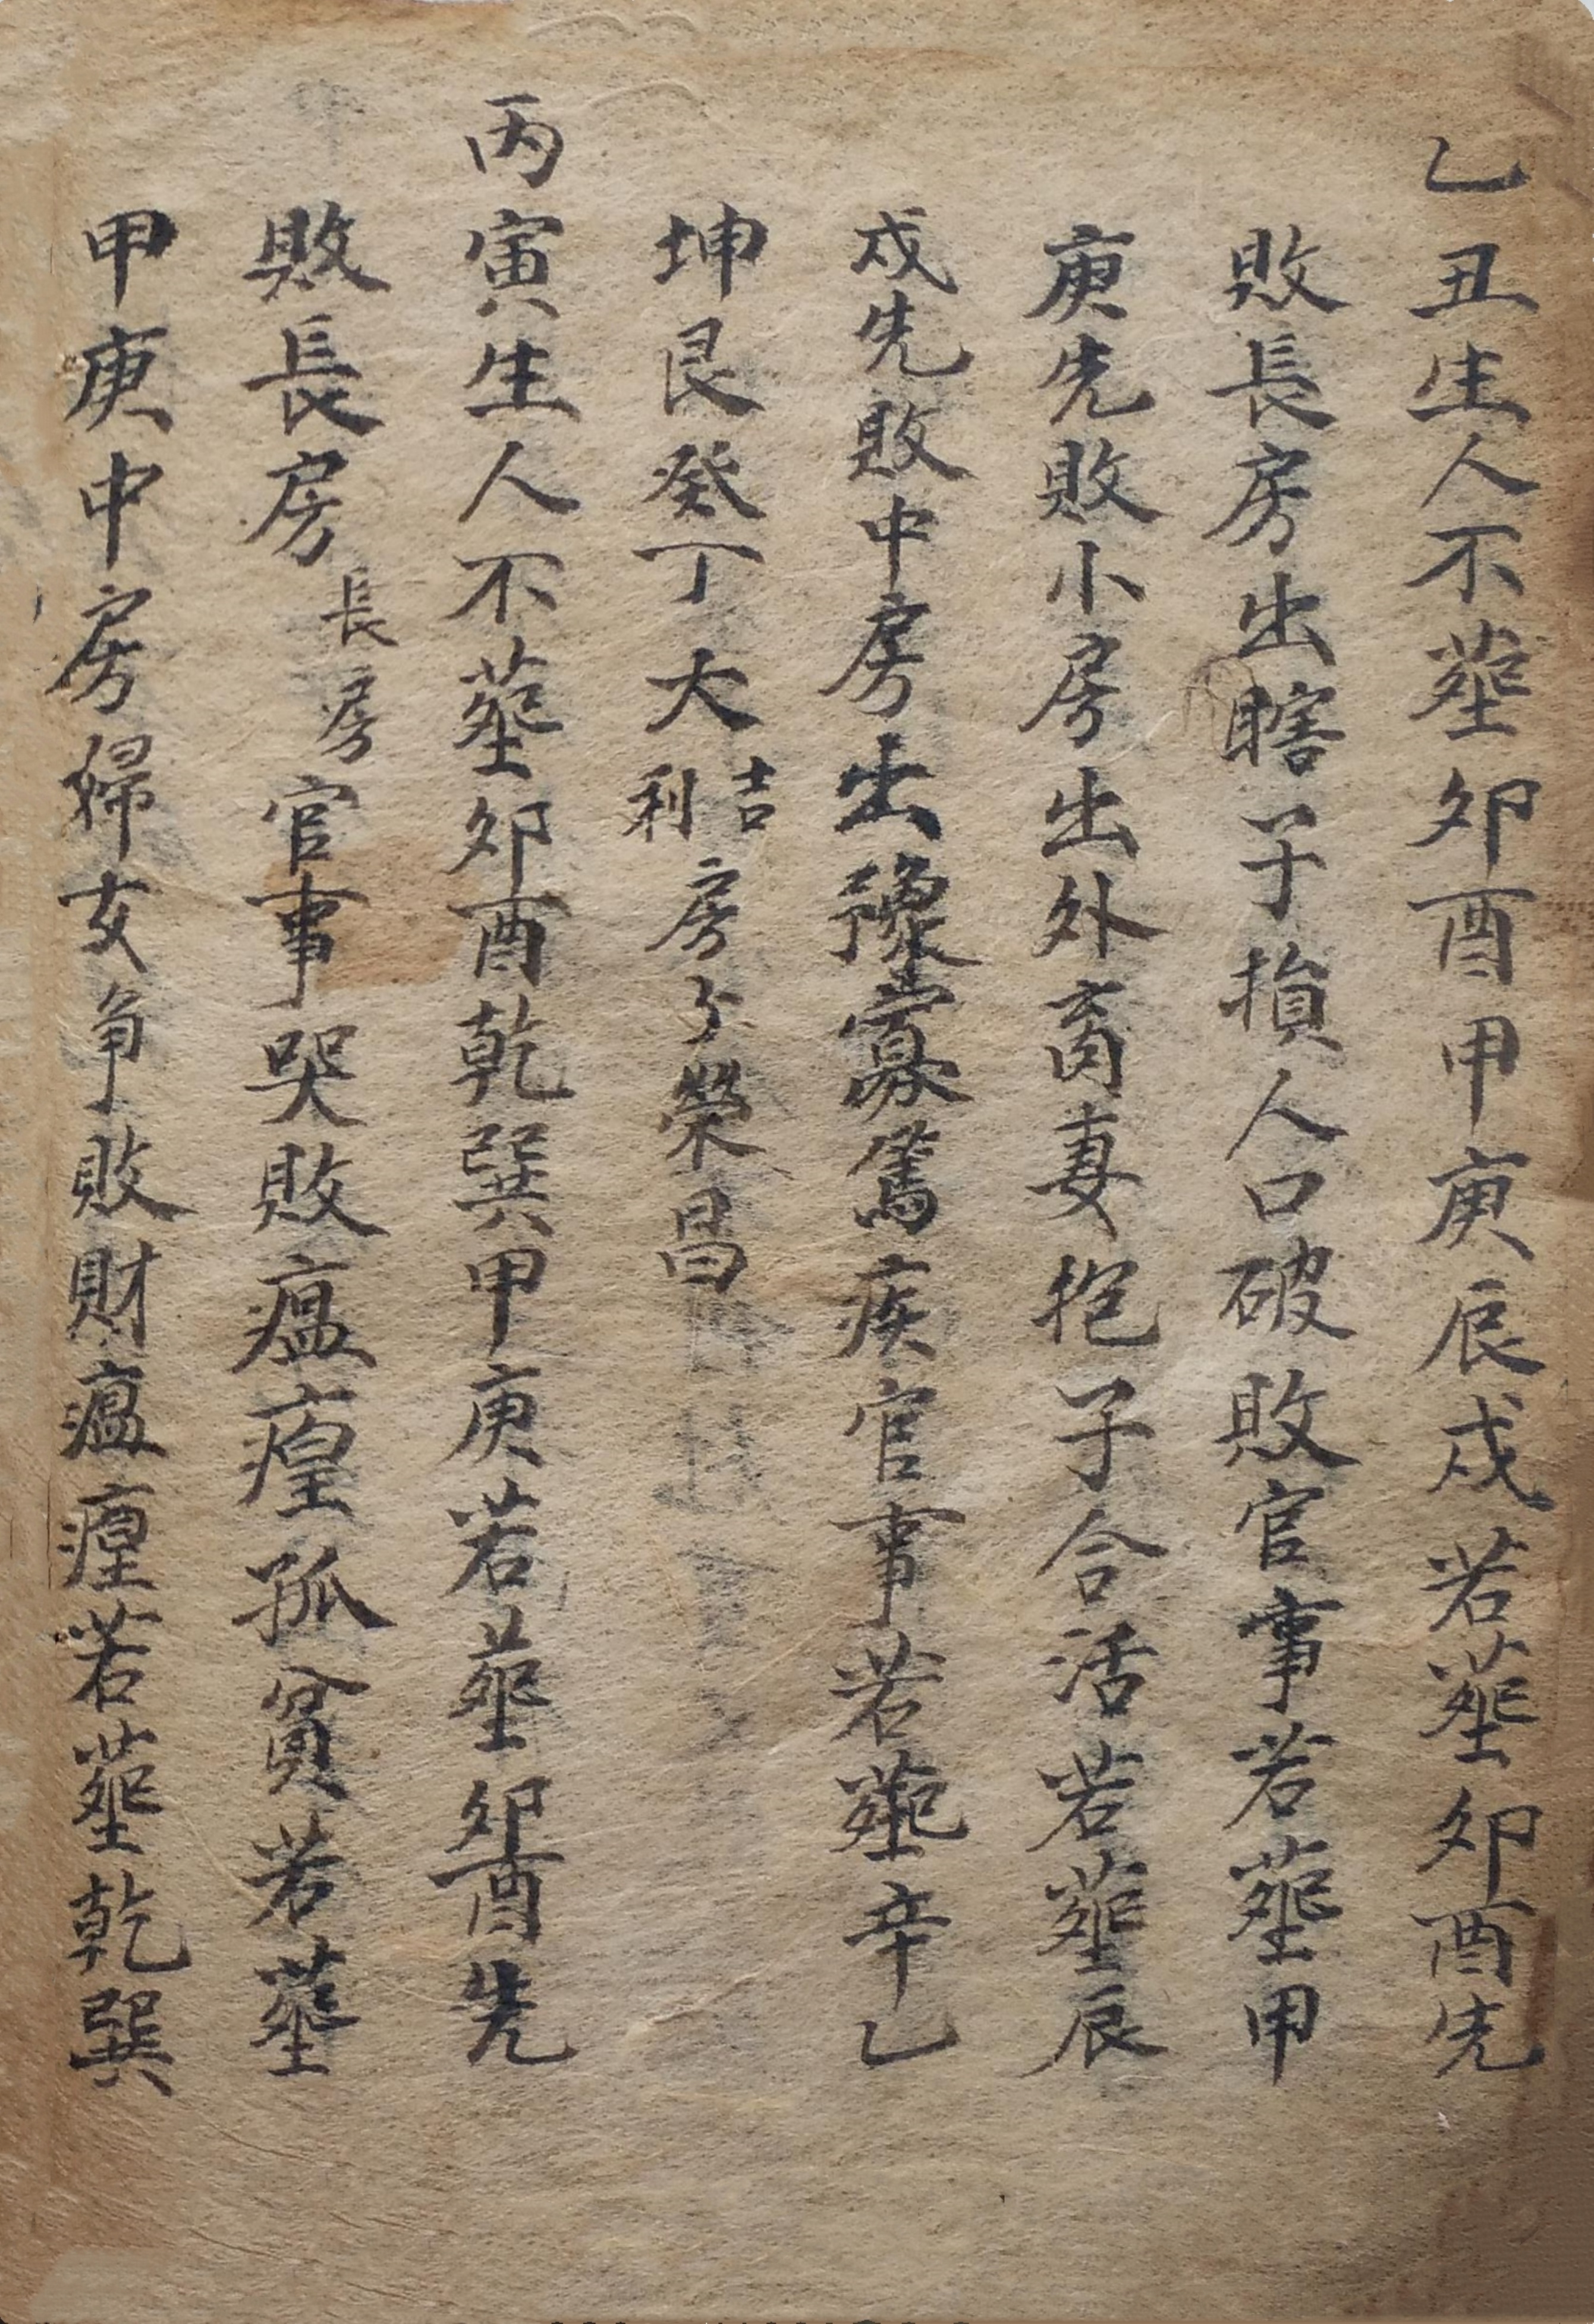 乙丑生人不塟夘酉甲庚辰戌若塟夘酉先
敗長房出瞎子損人口破敗官事若塟甲
庚先敗小房出外畜妻抱子合活若塟辰
戌先敗中房出寡篤疾官事若塟辛乙
坤艮癸丁大吉利房々榮昌
丙寅生人不塟夘酉乾巽甲庚若塟夘酉先
敗長房長房官事哭敗瘟瘟孤貧若塟
甲庚中房婦女爭敗財瘟瘟若塟乾巽